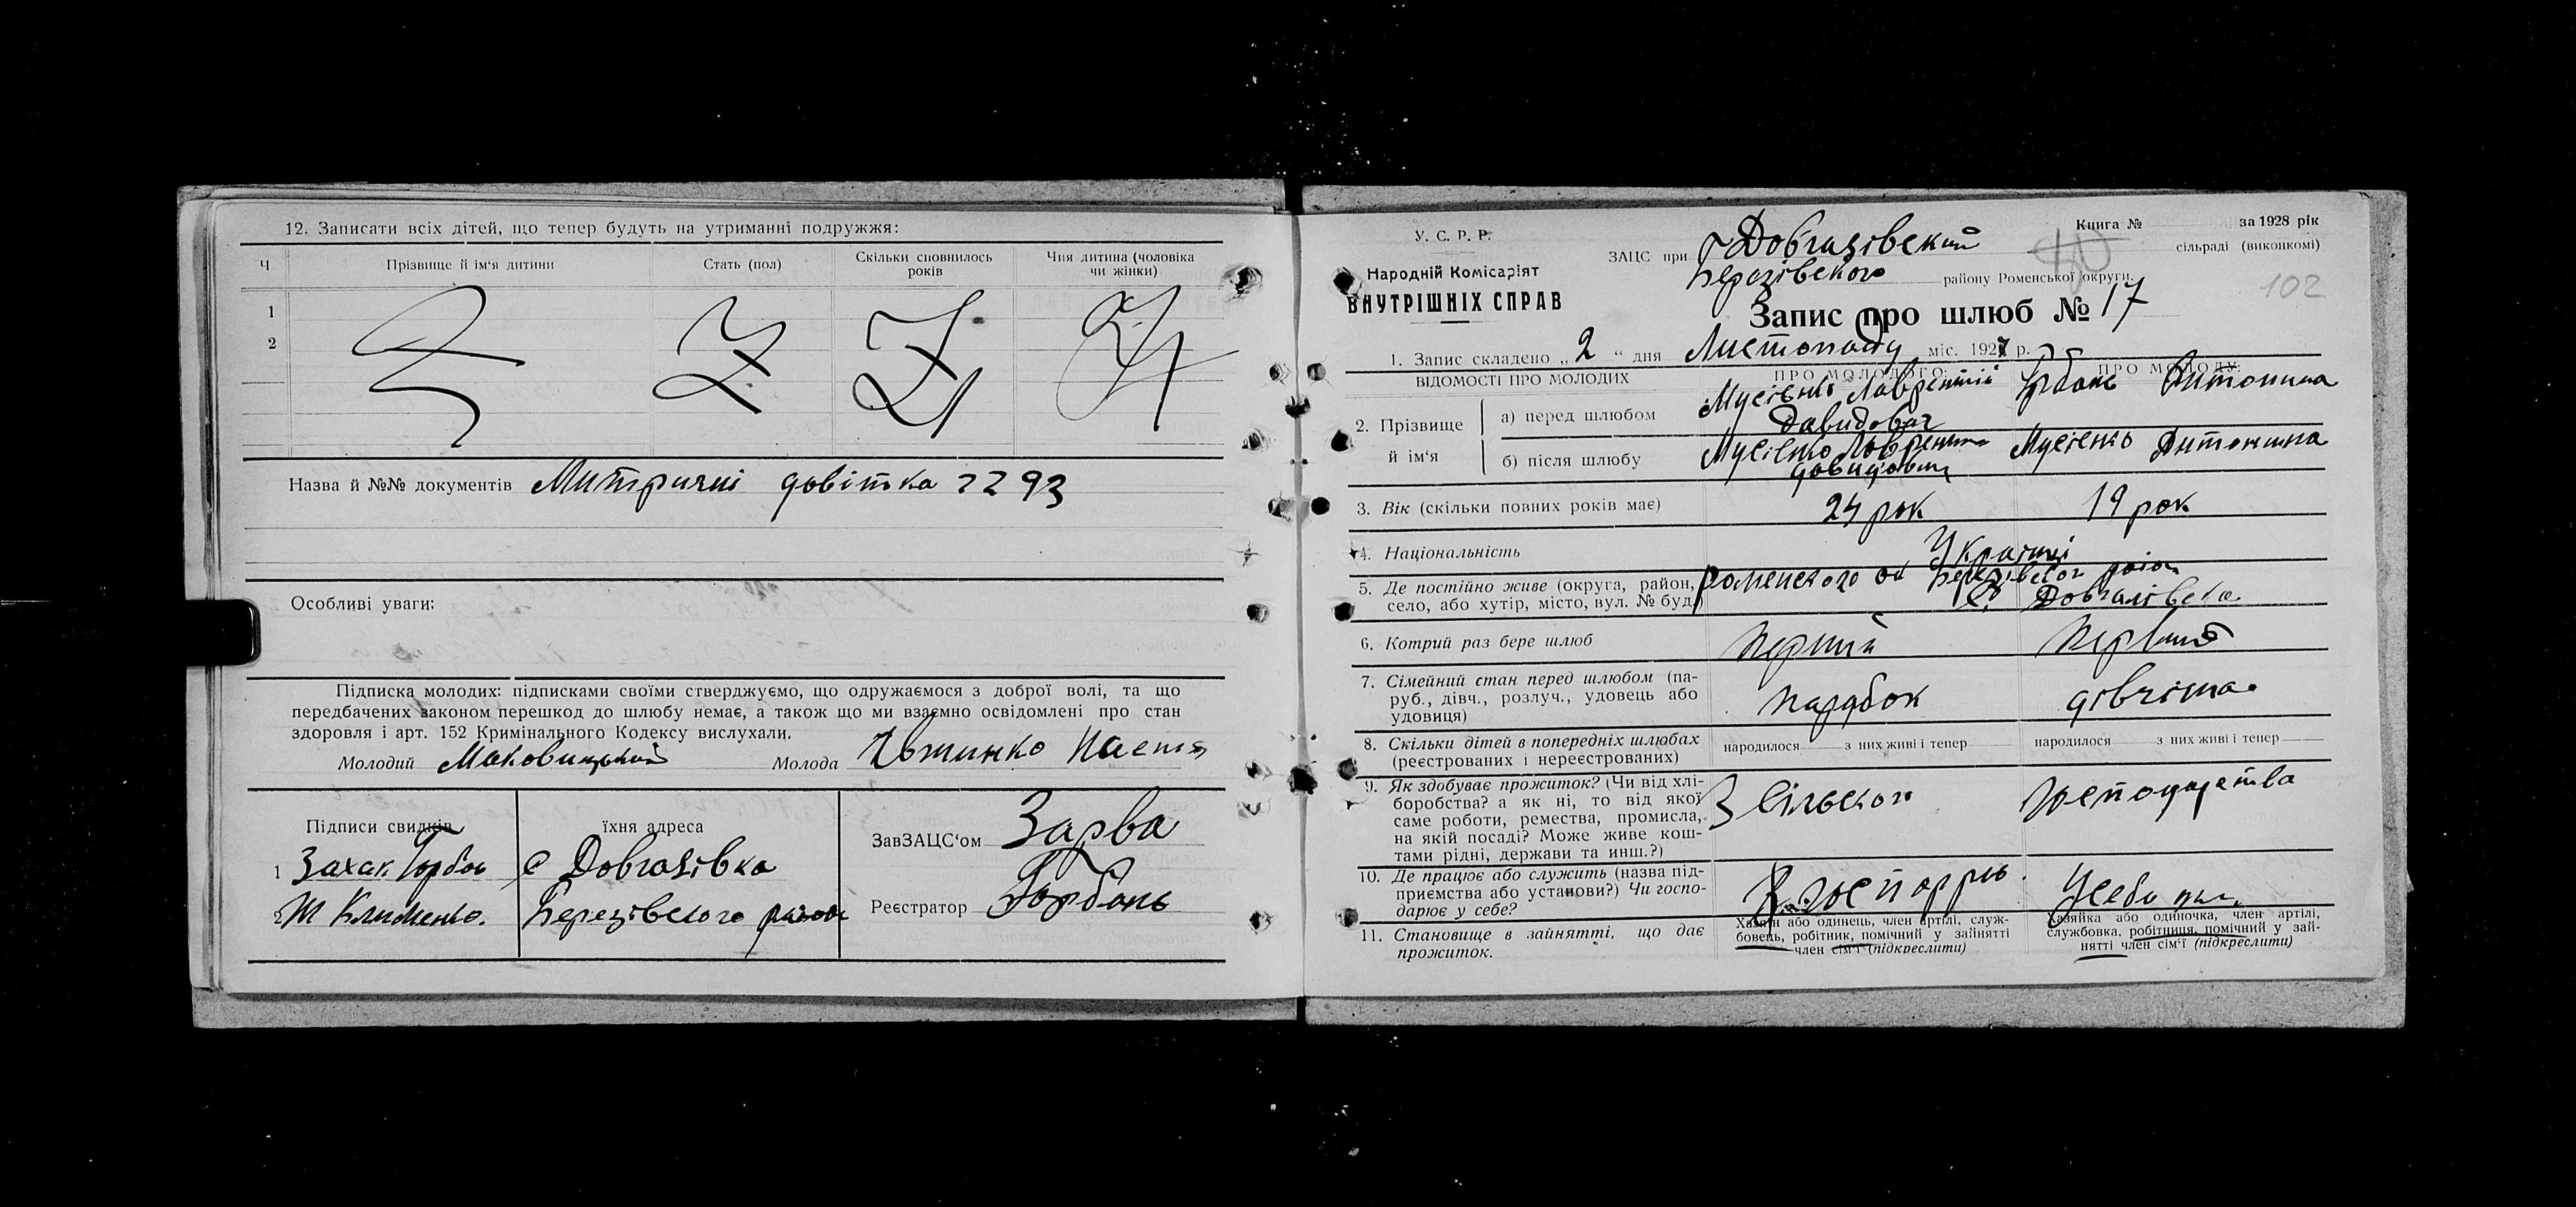 12. Записати всіх дітей, що тепер будуть на утриманні подружжя:
Ч Прізвище й ім'я дитини Стать (пол) Скільки сповнилось років Чия дитина (чоловіка чи жінки)
1
2
Назва й №№ документів Митричні довітка 2293
Особливі уваги:
Підписка молодих: підписками своїми стверджуємо, що одружаємося з доброї волі, та що
передбачених законом перешкод до шлюбу немає, а також що ми взаємно освідомлені про стан
здоровля і арт. 152 Кримінального Кодексу вислухали.
Молодий Молода
Підписи свидків їхня адреса ЗавЗАЦС'ом Зарва
1 Захак Горбон с Довгалівка
2 Клименко. Березівского района Реєстратор Горбонь
У. С. Р. Р.
Народній Комісаріят
ВНУТРІШНІХ СПРАВ
Книга № за 1928 рік
ЗАЦС при Довгалівский сільраді (виконкомі)
Березівского району Роменської округи.
102
Запис про шлюб № 17
1. Запис складено „ 2 “ дня Листопаду міс. 1927 р.
ВІДОМОСТІ ПРО МОЛОДИХ ПРО МОЛОДОГО: ПРО МОЛОДУ:
2. Прізвище й ім'я
а) перед шлюбом Мусієнко Лаврентій Давидович Антонина
б) після шлюбу Мусієнко Лаврентий Давидович Мусієнко Антонина
3. Вік (скільки повних років має) 24 рок 19 рок
4. Національність Українці
5. Де постійно живе (округа, район,
село, або хутір, місто, вул. № буд.) Роменского ок Березівског район
с. Довгалівка
6. Котрий раз бере шлюб Перший Первый
7. Сімейний стан перед шлюбом (па-
руб., дівч., розлуч., удовець або
удовиця) парубок дівчина
8. Скільки дітей в попередніх шлюбах
(реєстрованих і нереєстрованих) народилося з них живі і тепер народилося з них живі і тепер
9. Як здобуває прожиток? (Чи від хлі-
боробства? а як ні, то від якої
саме роботи, ремества, промисла,
на якій посаді? Може живе кош-
тами рідні, держави та инш.?) З сільского господарства
10. Де працює або служить (назва під-
приємства або установи?) Чи госпо-
дарює у себе? Усебе
11. Становище в зайнятті, що дає
прожиток.
Хазяїн або одинець, член артілі, служ-
бовець, робітник, помічний у зайнятті
член сім'ї (підкреслити)
Хазяйка або одиночка, член артілі,
службовка, робітниця, помічний у зай-
нятті член сім'ї (підкреслити)